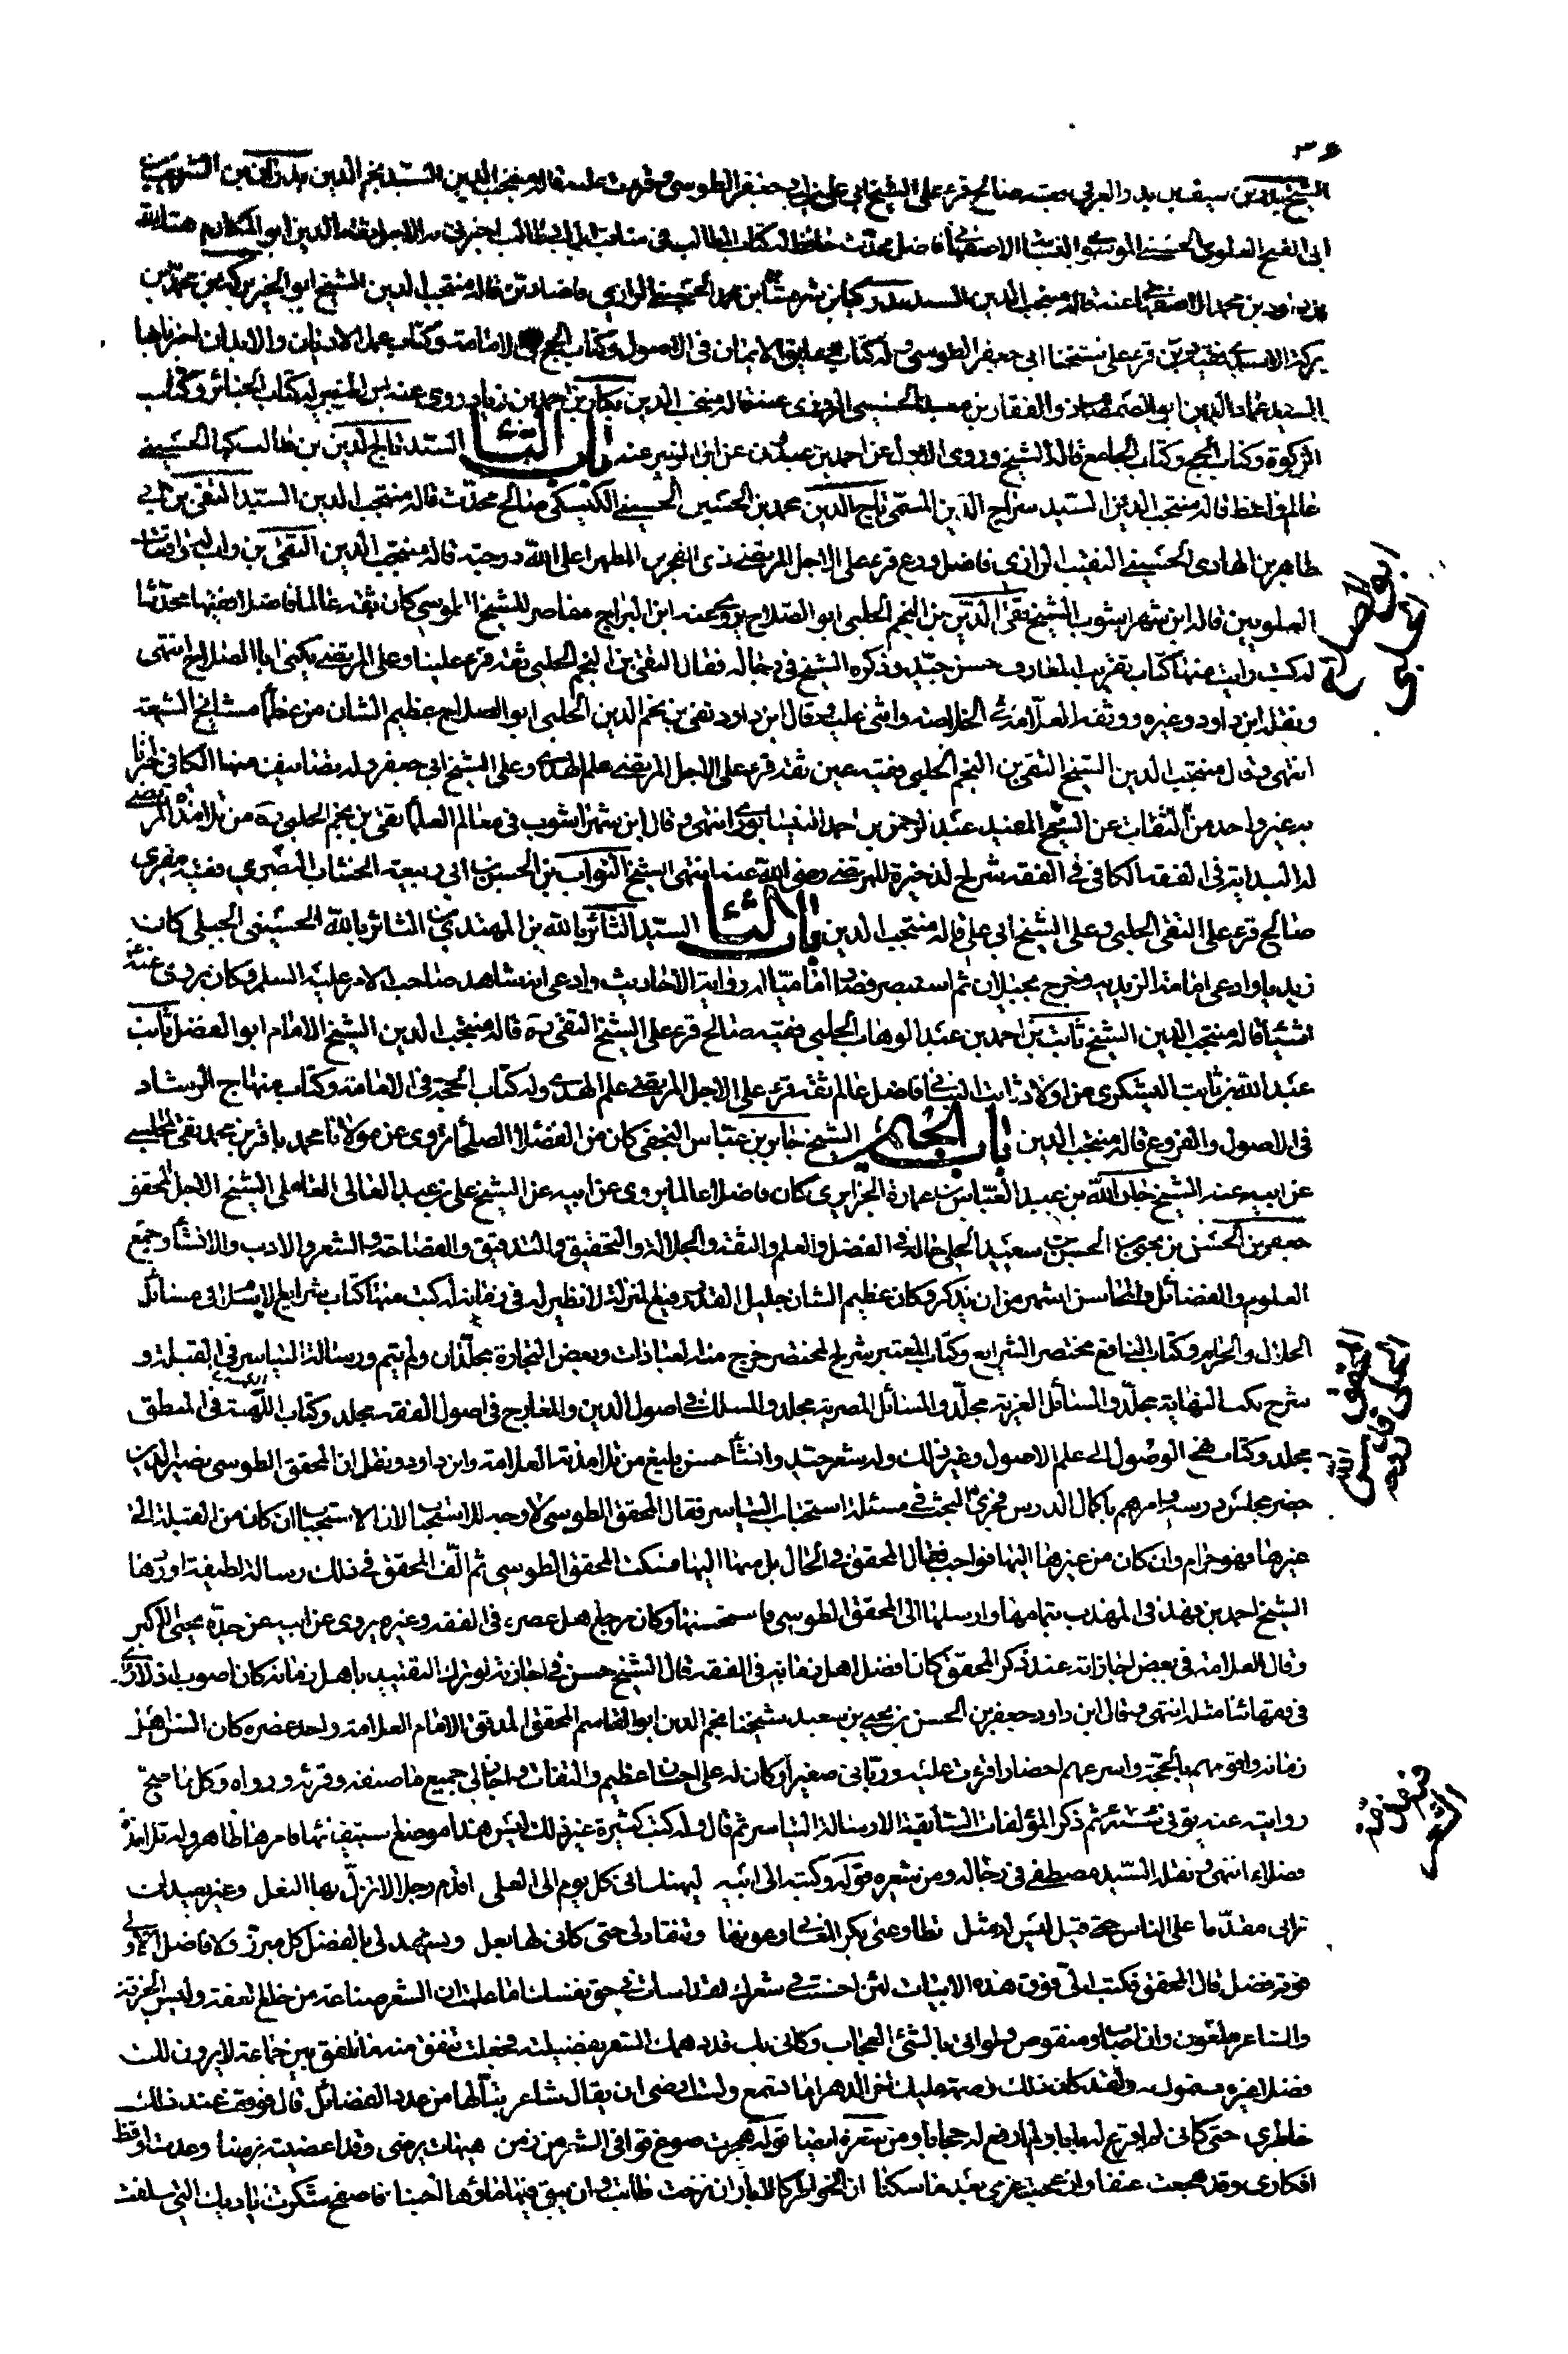 ٣٦
الشيخ بدر بن سيف بن بدر العربي فقيه صالح قرء على الشيخ ابي علي بن ابي جعفر الطوسي وقرءت عليه قاله منتجب الدين السيد نجم الدين بدران بن الشريف بن
ابي الفتح العلوي الحسيني الموسوي النسابة الاصفهاني فاضل محدث حافظ له كتاب المطالب في مناقب آل ابي طالب اخبرني به الاجل ثقة الدين ابو المكارم هبة الله
بن داود بن محمد الاصفهاني عنه قاله منتجب الدين السيد بدر كيا بن شرفشاه بن محمد الحسيني الرازي فاضل دين قاله منتجب الدين الشيخ ابو الخير بركة بن محمد بن
بركة الاسدي فقيه دين قرء على شيخنا ابي جعفر الطوسي وله كتاب حقايق الايمان في الاصول وكتاب الحجج في الامامة وكتاب عمل الاديان والابدان اخبرنا بها
السيد عماد الدين ابو الصمصام ذو الفقار بن معبد الحسيني المروزي عنه قاله منتجب الدين بكار بن احمد بن زياد روى عنه ابن الزبير له كتاب الجنائز وكتاب
الزكوة وكتاب الحج وكتاب الجامع قاله الشيخ وروى الاول عن احمد بن عبدون عن ابن الزبير عنه باب التاء السيد تاج الدين بن طالب كيا الحسيني
عالم واعظ قاله منتجب الدين السيد سراج الدين المسمى تاج الدين محمد بن الحسين الحسيني الكيسكي صالح محدث قاله منتجب الدين السيد التقي بن ابي
طاهر بن الهادي الحسيني النقيب الرازي فاضل ورع قرء على الاجل المرتضى ذي الفخرين المطهر اعلى الله درجته قاله منتجب الدين التقي بن داب له واقعات
العلويين قاله ابن شهراشوب الشيخ تقي الدين بن النجم الحلبي ابو الصلاح يروي عنه ابن البراج معاصر للشيخ الطوسي كان ثقة عالما فاضلا فقيها محدثا
له كتب رايت منها كتاب تقريب المعارف حسن جيد وذكره الشيخ في رجاله فقال التقي بن النجم الحلبي ثقة قرء علينا وعلى المرتضى يكنى ابا الصلاح انتهى
ونقله ابن داود وغيره ووثقه العلامة في الخلاصة واثنى عليه وقال ابن داود تقي بن نجم الدين الحلبي ابو الصلاح عظيم الشان من عظماء مشائخ الشيعة
انتهى وقال منتجب الدين الشيخ التقي بن النجم الحلبي فقيه عين ثقة قرء على الاجل المرتضى علم الهدى وعلى الشيخ ابي جعفر وله تصانيف منها الكافي اخبرنا
به غير واحد من الثقات عن الشيخ المفيد عبد الرحمن بن احمد النيسابوري انتهى وقال ابن شهراشوب في معالم العلماء تقي بن نجم الحلبي ره من تلامذة المرتضى
له البداية في الفقه الكافي في الفقه شرح الذخيرة للمرتضى رضي الله عنه انتهى الشيخ التواب بن الحسن بن ابي ربيعة الخشاب البصري فقيه مقري
صالح قرء على التقي الحلبي وعلى الشيخ ابي علي قاله منتجب الدين باب الثاء السيد الثائر بالله بن المهتدي بن الثائر بالله الحسيني الجيلي كان
زيديا وادعى امامة الزيدية وخرج بجيلان ثم استبصر فصار اماميا له رواية الاحاديث وادعى انه شاهد صاحب الامر عليه السلم وكان يروي عنه
اشياء قاله منتجب الدين الشيخ ثابت بن احمد بن عبد الوهاب الحلبي فقيه صالح قرء على الشيخ التقي ره قاله منتجب الدين الشيخ الامام ابو الفضل ثابت
عبد الله بن ثابت اليشكري من اولاد ثابت البناني فاضل عالم ثقة قرء على الاجل المرتضى علم الهدى وله كتاب الحجة في الامامة وكتاب منهاج الرشاد
في الاصول والفروع قاله منتجب الدين باب الجيم الشيخ جابر بن عباس النجفي كان من الفضلاء الصلحاء يروى عن مولانا محمد باقر بن محمد تقي المجلسي
عن ابيه عنه الشيخ جار الله بن عبد العباس بن عمارة الجزايري كان فاضلا عالما يروي عن ابيه عن الشيخ علي بن عبد العالي العاملي الشيخ الاجل المحقق
جعفر بن الحسن بن يحيى بن الحسن بن سعيد الحلي حاله في الفضل والعلم والثقة والجلالة والتحقيق والتدقيق والفصاحة والشعر والادب والانشاء وجميع
العلوم والفضائل والمحاسن اشهر من ان يذكر وكان عظيم الشان جليل القدر رفيع المنزلة لا نظير له في زمانه له كتب منها كتاب شرايع الاسلام في مسائل
الحلال والحرام وكتاب النافع مختصر الشرايع وكتاب المعتبر شرح المختصر خرج منه العبادات وبعض التجارة مجلدان ولم يتم ورسالة التياسر في القبلة و
شرح نكت النهاية مجلد والمسائل العزية مجلد والمسائل المصرية مجلد والمسلك في اصول الدين والمعارج في اصول الفقه مجلد وكتاب اللهنة في المنطق
مجلد وكتاب نهج الوصول الى علم الاصول وغير ذلك وله شعر جيد وانشاء حسن بليغ من تلامذته العلامة وابن داود ونقل ان المحقق الطوسي نصير الدين
حضر مجلس درسه وامرهم باكمال الدرس فجرى البحث في مسئلة استحباب التياسر فقال المحقق الطوسي لا وجه للاستحباب لان الاستحباب ان كان من القبلة الى
غيرها فهو حرام وان كان من غيرها اليها فواجب فقال المحقق في الحال بل منها اليها فسكت المحقق الطوسي ثم الف المحقق في ذلك رسالة لطيفة اوردها
الشيخ احمد بن فهد في المهذب بتمامها وارسلها الى المحقق الطوسي فاستحسنها وكان مرجع اهل عصره في الفقه وغيره يروي عن ابيه عن جده يحيى الاكبر
وقال العلامة في بعض اجازاته عند ذكر المحقق كان افضل اهل زمانه في الفقه قال الشيخ حسن في اجازته لو ترك التقييد باهل زمانه كان اصوب اذ لا ارى
في فقهائنا مثله انتهى وقال ابن داود جعفر بن الحسن بن يحيى بن سعيد شيخنا نجم الدين ابو القاسم المحقق المدقق الامام العلامة واحد عصره كان السن اهل
زمانه واقومهم بالحجة واسرعهم احضارا قرءت عليه ورباني صغيرا وكان له علي احسان عظيم والتفات واجاز لي جميع ما صنفه وقرئه ورواه وكل ما صح
روايته عنه توفي ثم ذكر المؤلفات السابقة الا رسالة التياسر ثم قال وله كتب كثيرة غير ذلك ليس هذا موضع استيفائها فامرها ظاهر وله تلامذة
فضلاء انتهى ونقله السيد مصطفى في رجاله ومن شعره قوله وكتبه الى ابيه ليهنك اني كل يوم الى العلى اقدم رجلا لا تزل بها النعل وغير بعيد ان
تراني مقدما على الناس حتى قيل ليس له مثل تطاوعني بكر المعاني وعونها وتنقاد لي حتى كاني لها بعل ويشهد لي بالفضل كل مبرز ولا فاضل الا ولي
فوقه فضل قال المحقق فكتب الي فوق هذه الابيات لئن احسنت في شعرك لقد اسات في حق نفسك اما علمت ان الشعر صناعة من خلع العفة ولبس الحرفة
والشاعر ملعون وان اصاب ومنقوص ولو اتى بالشئ العجاب وكاني بك قد دهمك الشعر بفضيلته فجعلت تنفق منه ما تلفق بين جماعة لا يرون لك
فضلا غيره فسموك به ولقد كان ذلك وصمة عليك اخر الدهر اما تسمع ولست ارضى ان يقال شاعر تبا لها من عدد الفضائل قال فوقف عند ذلك
خاطري حتى كاني لم اقرع له بابا ولم ارفع له حجابا ومن شعره ايضا قوله هجرت صوغ قوافي الشعر من زمن هيهات يرضى وقد اغضبته زمنا وعدت اوقظ
افكاري وقد هجعت عنفا وازعجت عزمي بعد ما سكنا ان الخواطر كالابار ان نزحت طابت وان يبق فيها ماؤها اجنا فاصفح شكرت اياديك التي سلفت
ابو الصلاح
المحقق الحلي قدس الله